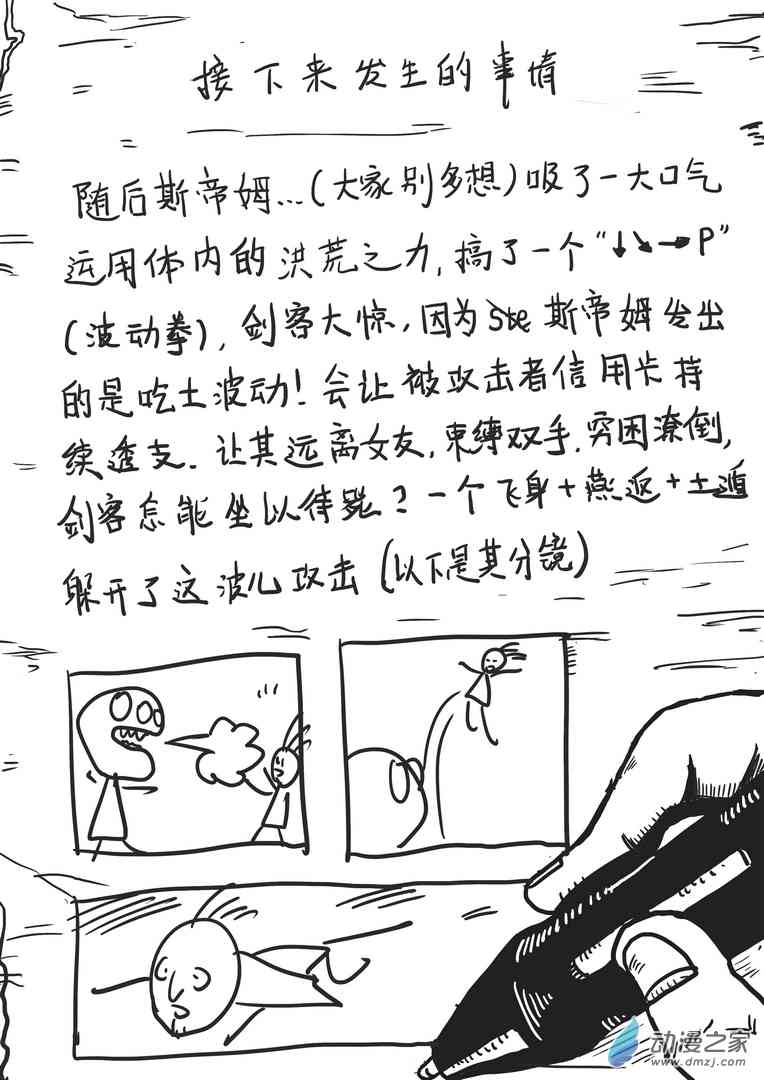 接下来发生的事情
随后斯帝姆...(大家别多想)吸了一大口气
运用体内的洪荒之力,搞了一个"↓↘→P"
(波动拳),剑客大惊,因为Ste斯帝姆发出
的是吃土波动!会让被攻击者信用卡持
续透支.让其远离女友,束缚双手.穷困潦倒,
剑客怎能坐以待毙?一个飞身+燕返+土遁
躲开了这波儿攻击(以下是其分镜)
动漫之家
www.dmzj.com